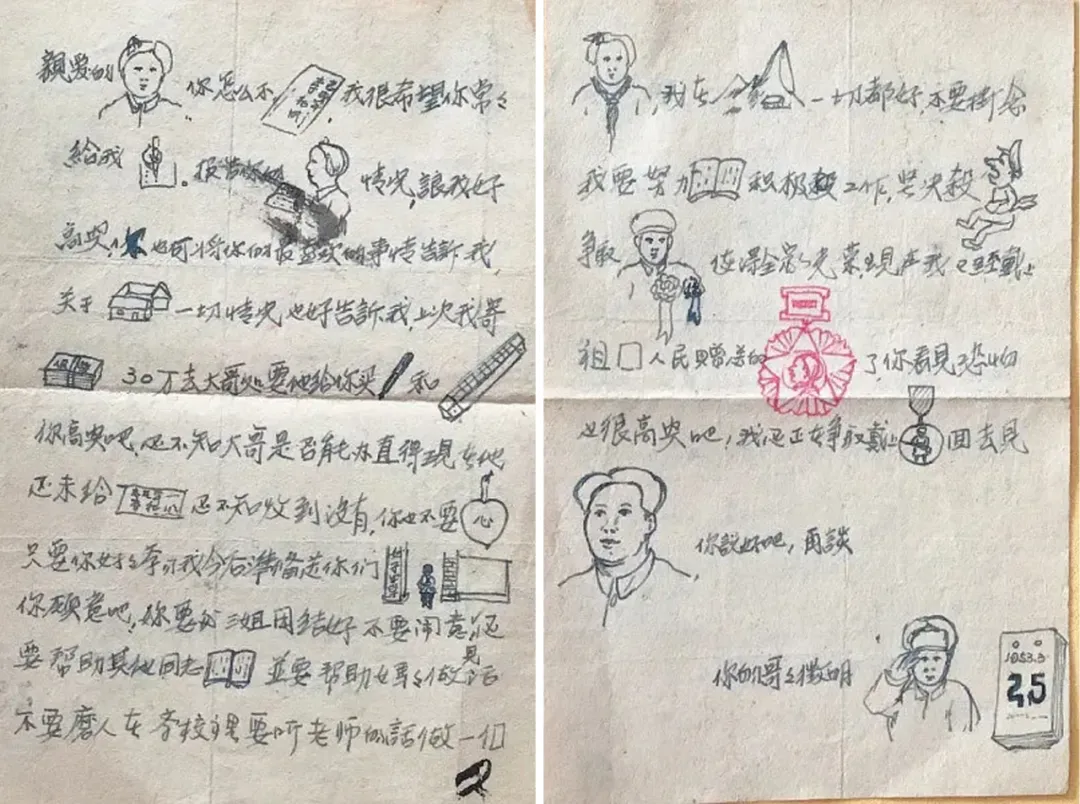 親爱的 你怎么不 我很希望你常々
給我 。报告你的 情况,讓我好
高兴, 也可将你们最喜欢的事情告訴我
关于 一切情况也好告訴我,上次我寄
30万去大哥处要他給你买 和
你高兴吧,还不知大哥是否能办直得現在他
还未給 还不知收到没有,你也不要 心
只要你好好學习我今后準备送你们
你願意吧,你要和三姐团结好不要闹意見还
要帮助其他同志 並要帮助妈妈做活
不要磨人在学校裡要听老师的話做一们
,我在 一切都好,不要掛念
我要努力 积极 工作,坚决殺
争取 使得全家光荣,現在我已经戴上
祖囗人民赠送的 了你看見恐怕
也很高兴吧,我还正在争取戴上 回去見
你說好吧,再談
你的哥々徵明
1953.3
25